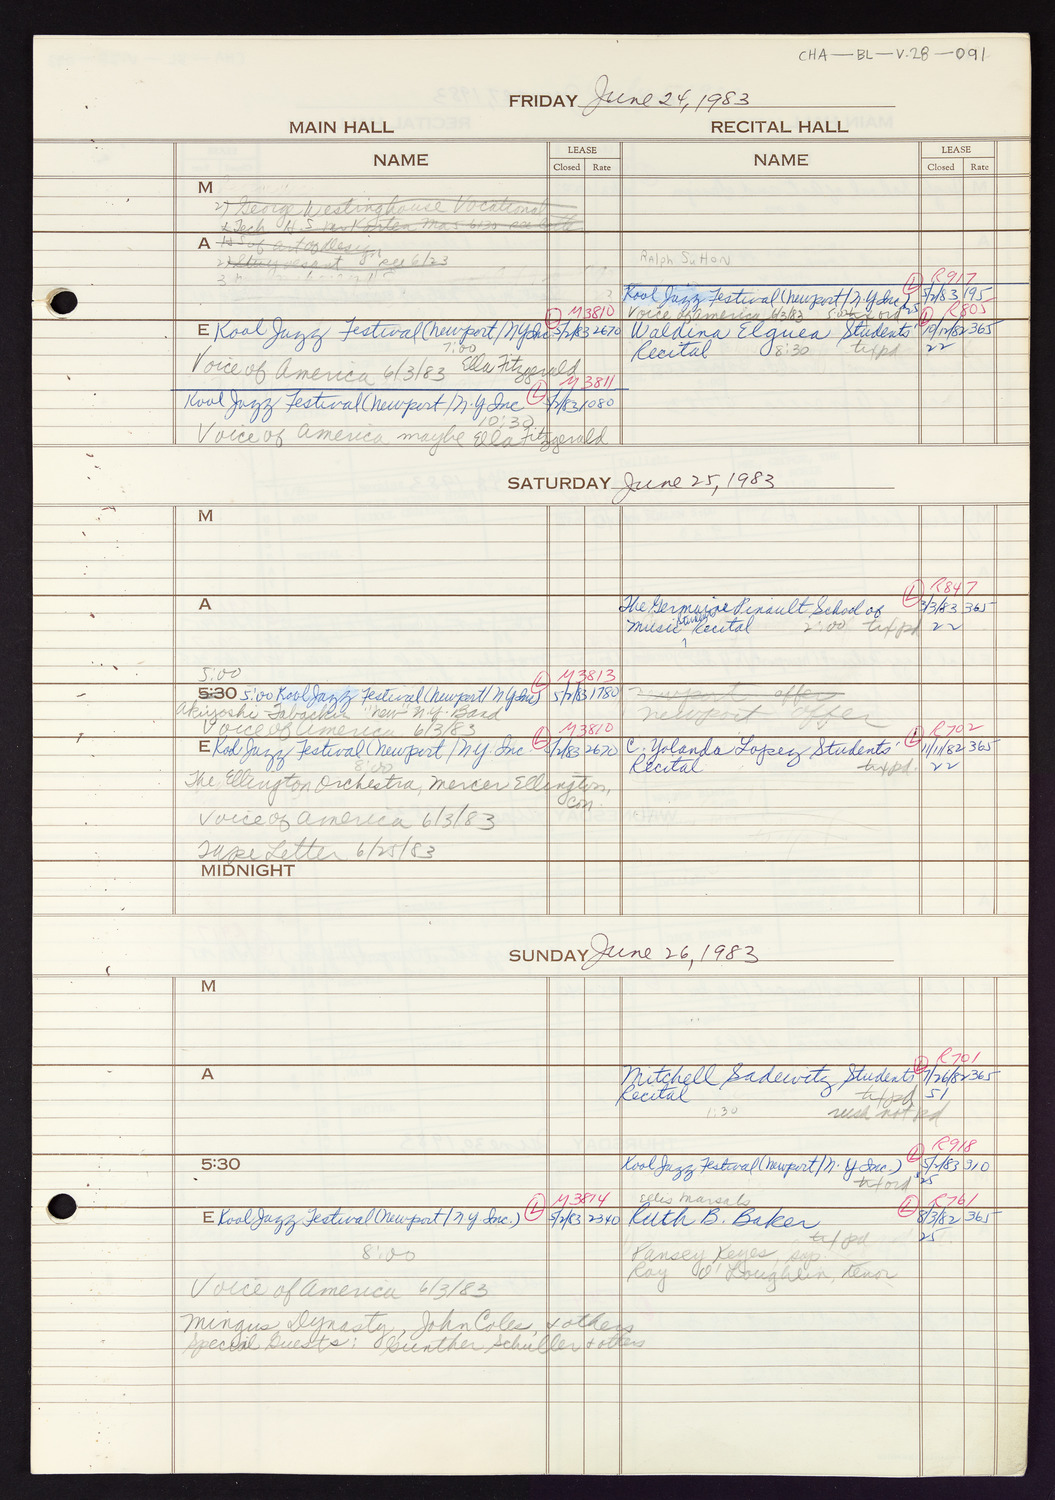 CHA—BL—V.28—091
FRIDAY June 24, 1983
MAIN HALL RECITAL HALL
NAME LEASE Closed Rate NAME LEASE Closed Rate
M
27 George Westinghouse Vocational
& Tech H.S.
A HS of art & design
Ralph Sutton
R917
Kool Jazz Festival (Newport/N.Y Inc) L 5/2/83 195
Voice of America 6/3/83 25
M3810
E Kool Jazz Festival (Newport/NY Inc L 5/2/83 2670
7:00
Voice of America 6/3/83 Ella Fitzgerald
R805
Waldina Elguea Students' L 10/12/82 365
Recital 8:30 tixpd 22
M3811
Kool Jazz Festival (Newport/N.Y Inc L 5/2/83 1080
10:30
Voice of America maybe Ella Fitzgerald
SATURDAY June 25, 1983
M
A
R847
The Germaine Pinault School of L 3/3/83 365
Music Student Recital 2:00 tixpd 22
5:00
M3813
5:30 5:00 Kool Jazz Festival (Newport/N Y Inc) L 5/2/83 1780
Akiyoshi-Tabackin "new" N.Y. Band
Voice of America 6/3/83
Newport offer
Newport offer
M3810
E Kool Jazz Festival (Newport/N.Y. Inc L 5/2/83 2670
8:00
The Ellington Orchestra, Mercer Ellington,
con.
Voice of America 6/3/83
Tape Letter 6/25/83
R702
C. Yolanda Lopez Students' L 11/11/82 365
Recital tixpd. 22
MIDNIGHT
SUNDAY June 26, 1983
M
A
R701
Mitchell Sadewitz Students' L 7/26/82 365
Recital tixpd 51
1:30 rush not pd
5:30
R918
Kool Jazz Festival (Newport/N.Y Inc.) L 5/2/83 910
tixord 25
Ellis Marsalis
M3814
E Kool Jazz Festival (Newport/N Y Inc.) L 5/2/83 2340
8:00
Voice of America 6/3/83
Mingus Dynasty, John Coles, & others
Special Guests: Gunther Schuller & others
R761
Ruth B. Baker L 8/3/82 365
tixpd 25
Pansey Keyes, sop
Ray O'Loughlin, tenor